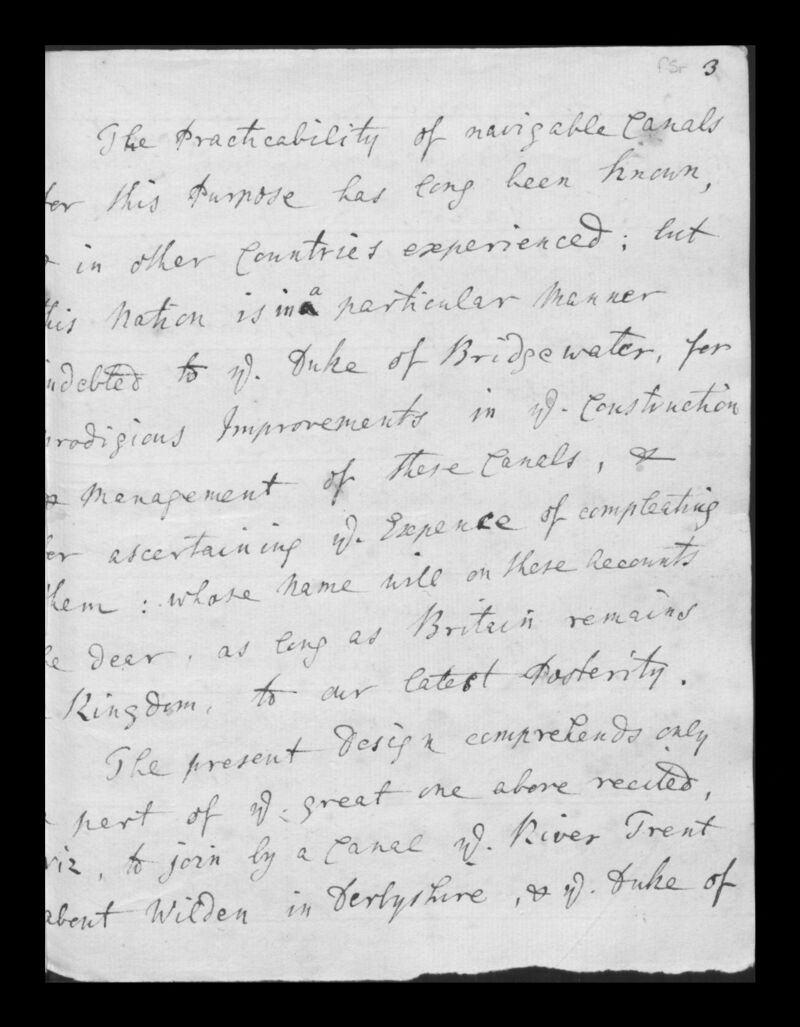 3
The Practicability of navigable Canals
for this Purpose has long been known,
& in other Countries experienced; but
this Nation is in a particular Manner
indebted to ye. Duke of Bridgewater, for
prodigious Improvements in ye. Construction
& Management of these Canals, &
for ascertaining ye. Expence of compleating
them: whose Name will on these Accounts
be dear, as long as Britain remains
a Kingdom, to our latest Posterity.
The present Design comprehends only
a part of ye. great one above recited,
viz, to join by a Canal ye. River Trent
about Wilden in Derbyshire, & ye. Duke of